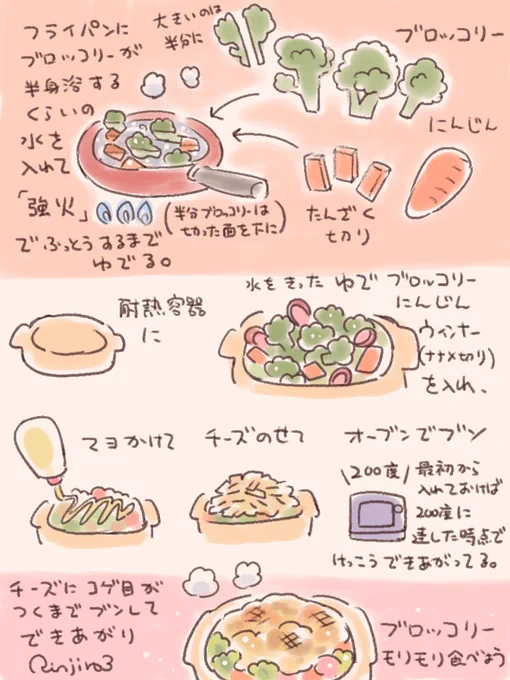 フライパンに
ブロッコリーが
半身浴する
くらいの
水を
入れて
「強火」
でふっとうするまで
ゆでる。
(半分ブロッコリーは
切った面を下に)
大きいのは
半分に
ブロッコリー
にんじん
たんざく
切り
耐熱容器
に
水をきった ゆでブロッコリー
にんじん
ウィンナー
(ナナメ切り)
を入れ、
マヨかけて
チーズのせて
オーブンでブン
\200度/
最初から
入れておけば
200度に
達した時点で
けっこうできあがってる。
チーズにコゲ目が
つくまでブンして
できあがり
Rinjiro3
ブロッコリー
モリモリ食べよう